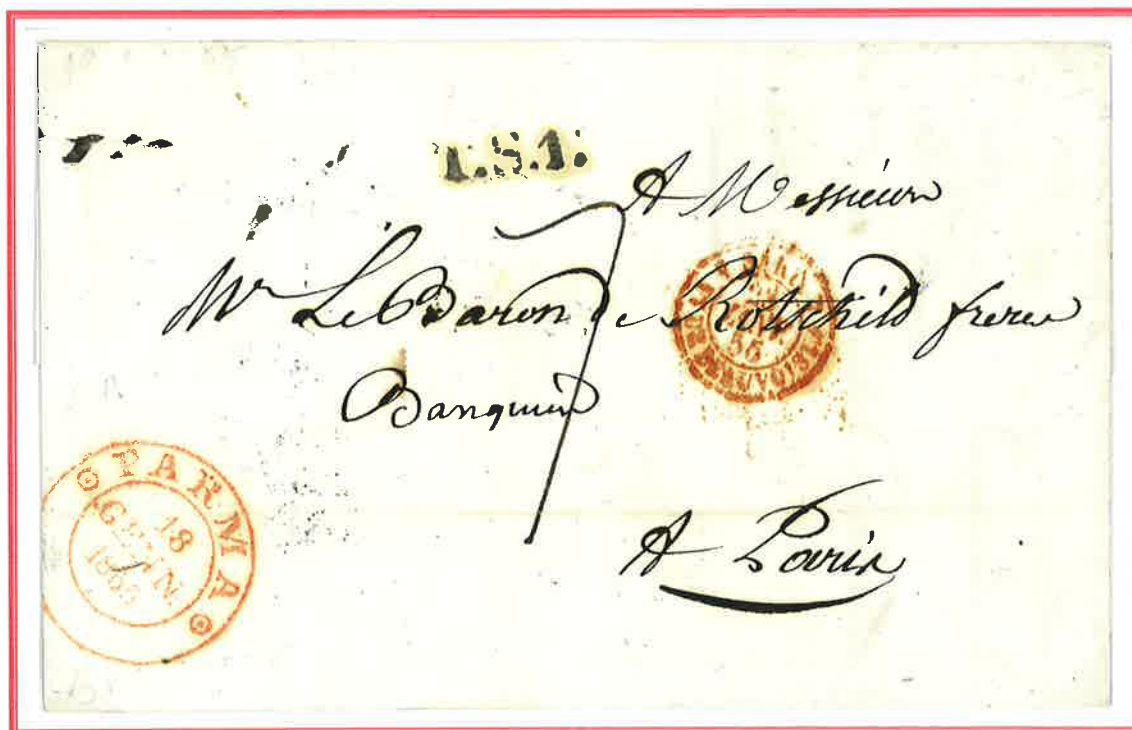 T.S.1.
A Messieurs
Mr Le Baron de Rotschild freres
Banquier
A Paris
PARMA
18
GENN.
1855
55
BEAUVOISIN
7